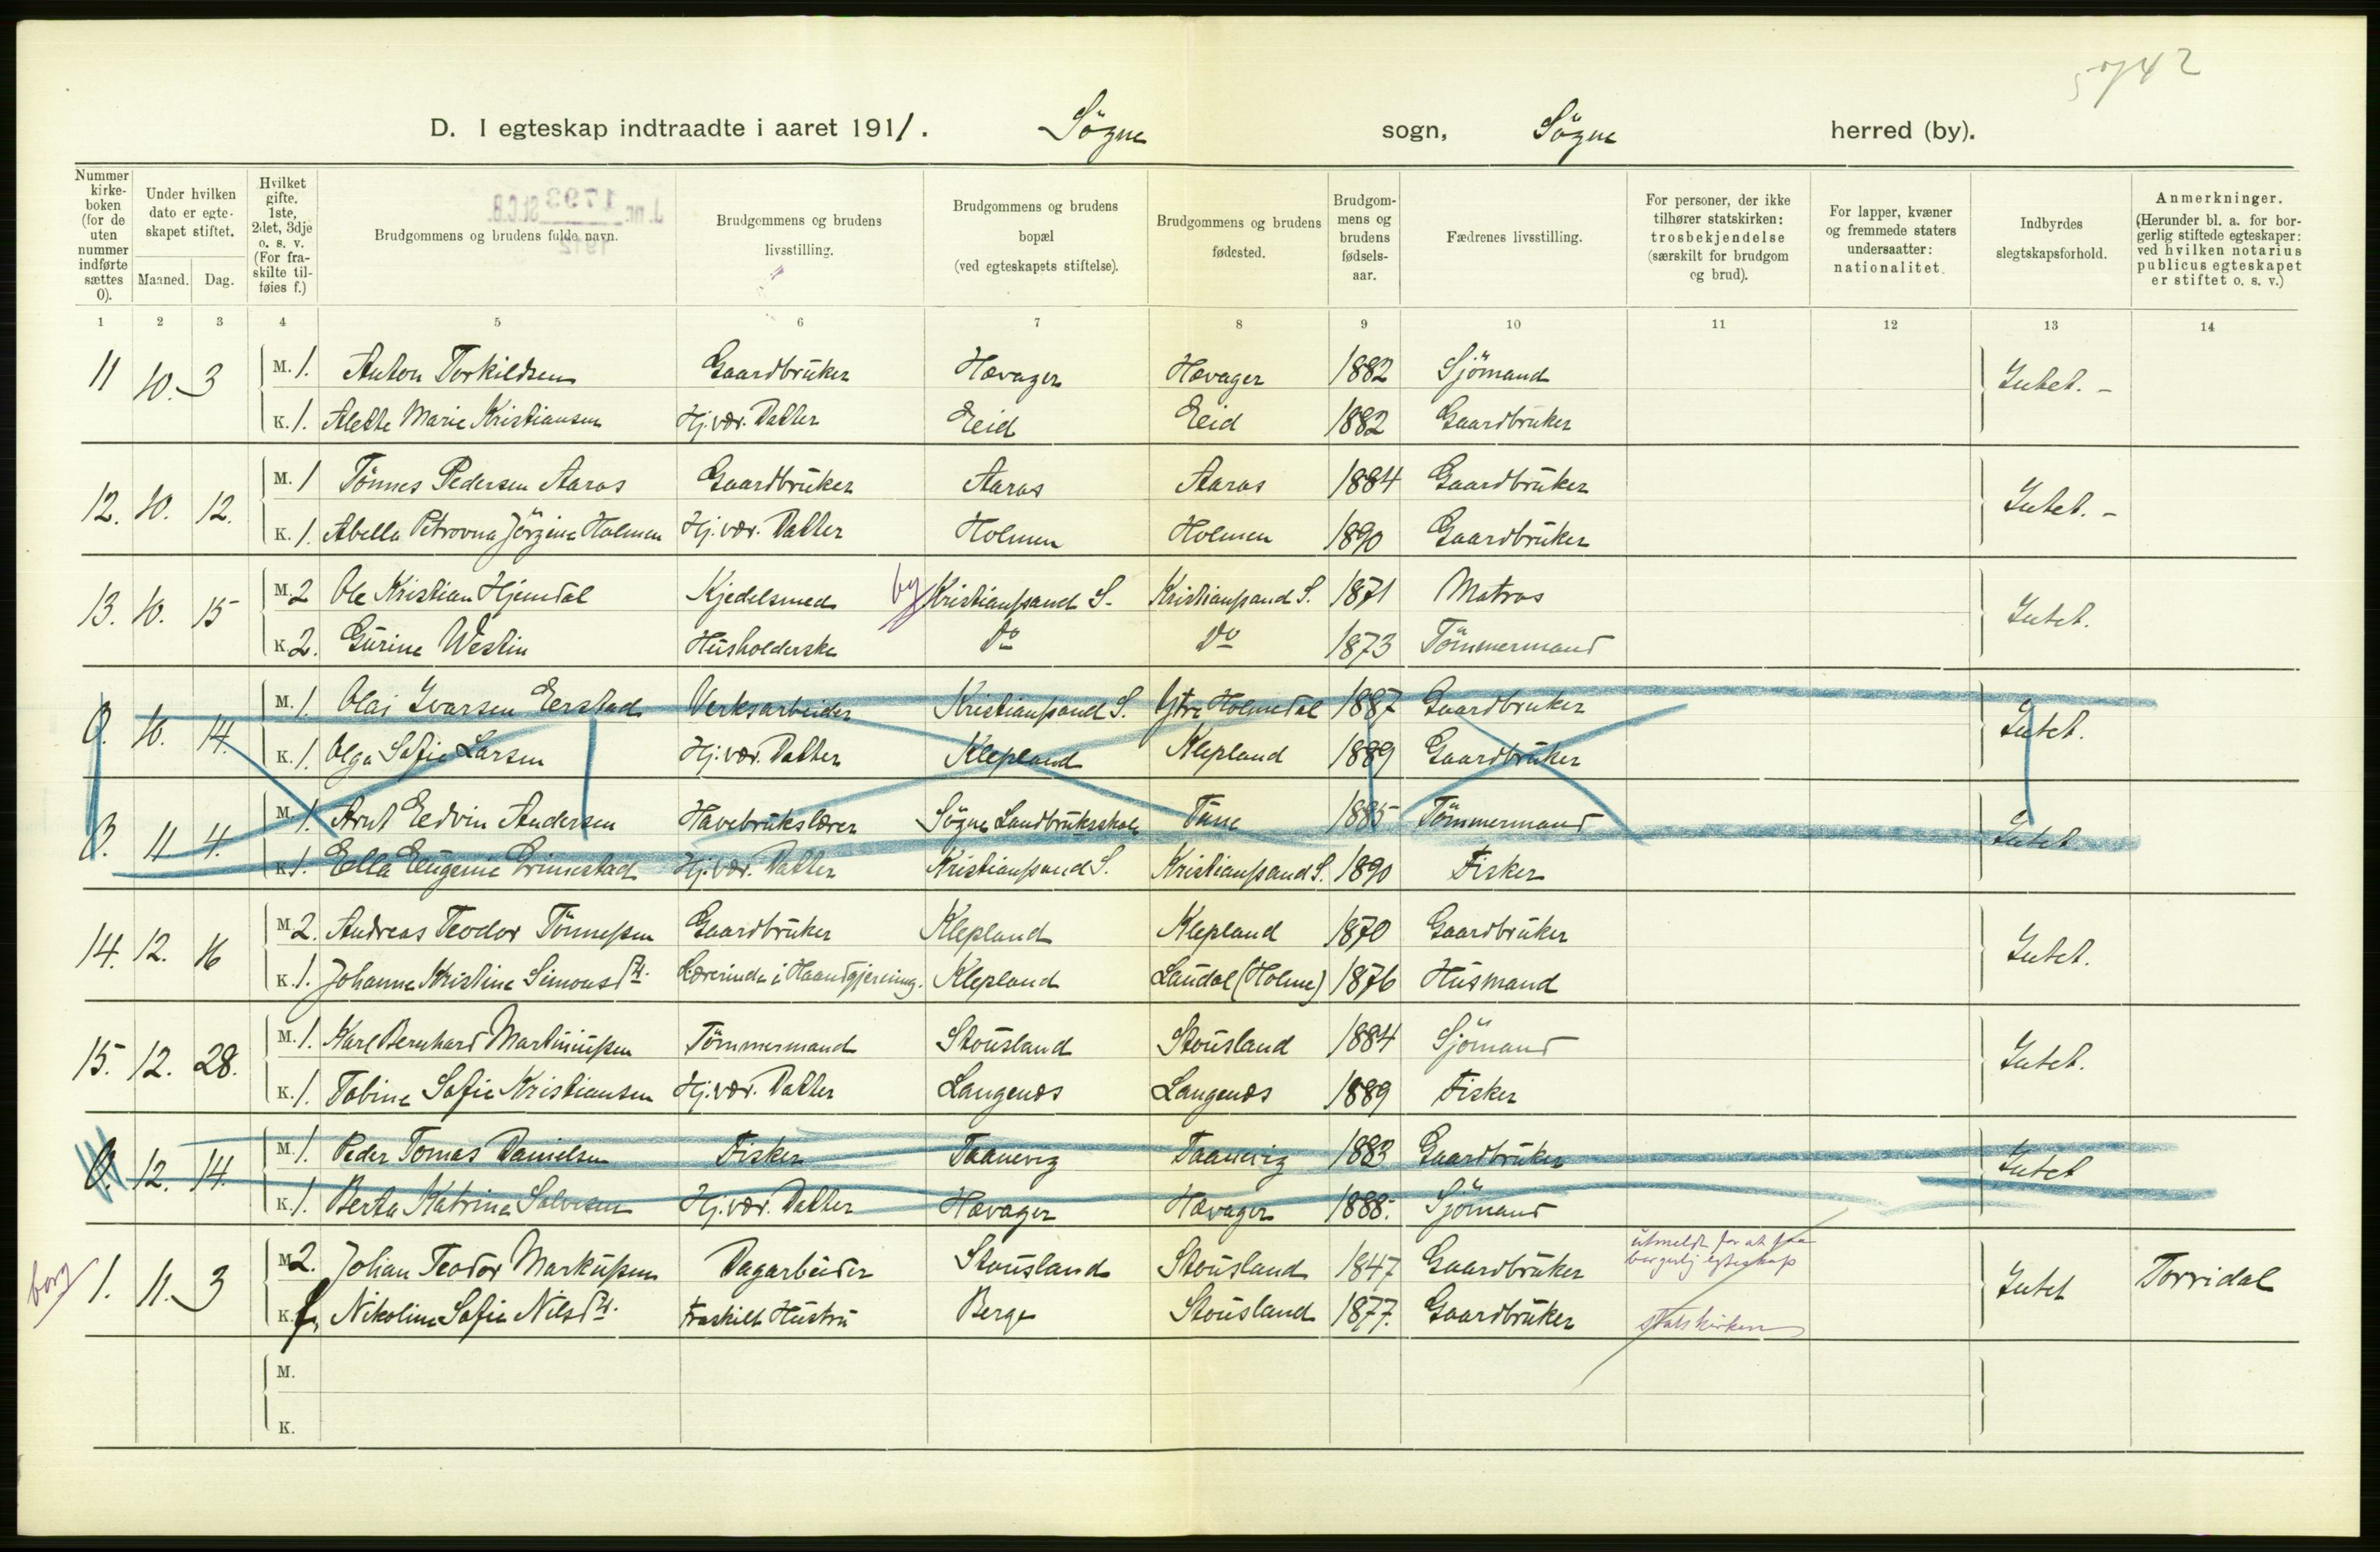 5742
D. I egteskap indtraadte i aaret 1911. Søgne sogn, Søgne herred (by).
J. nr. 1793 St.C.B.
1912
Nummer kirkeboken (for de uten nummer indførte sættes 0). | Under hvilken dato er egteskapet stiftet. Maaned. Dag. | Hvilket gifte. 1ste, 2det, 3dje o. s. v. (For fraskilte tilføies f.) | Brudgommens og brudens fulde navn. | Brudgommens og brudens livsstilling. | Brudgommens og brudens bopæl (ved egteskapets stiftelse). | Brudgommens og brudens fødested. | Brudgommens og brudens fødselsaar. | Fædrenes livsstilling. | For personer, der ikke tilhører statskirken: trosbekjendelse (særskilt for brudgom og brud). | For lapper, kvæner og fremmede staters undersaatter: nationalitet. | Indbyrdes slegtskapsforhold. | Anmerkninger. (Herunder bl. a. for borgerlig stiftede egteskaper: ved hvilken notarius publicus egteskapet er stiftet o. s. v.)
1 2 3 4 5 6 7 8 9 10 11 12 13 14
11 10. 3 M. 1. Anton Torkildsen Gaardbrüker Hævager Hævager 1882 Sjömand Intet. -
K. 1. Alette Marie Kristiansen Hj.vær. Datter Eeid Eeid 1882 Gaardbrüker
12. 10. 12. M. 1 Tönnes Pedersen Aaros Gaardbrüker Aaros Aaros 1884 Gaardbrüker Intet. -
K. 1. Abella Petrovna Jörgine Holmen Hj.vær. Datter Holmen Holmen 1890 Gaardbrüker
13. 10. 15 M. 2 Ole Kristian Hjemdal Kjedelsmed by Kristianssand S. Kristianssand S. 1871 Matros Intet.
K. 2. Gürine Westin Hüsholderske Do Do 1873 Tömmermand
0. 10. 14. M. 1. Olai Ivarsen Eerstad Verksarbeider Kristianssand S. Ytre Holmedal 1887 Gaardbruker Intet.
K. 1. Olga Sofie Larsen Hj.vær. Datter Klepland Klepland 1889 Gaardbrüker
0. 11 4. M. 1. Arnt Eedvin Andersen Havebrükslærer Søgne Landbrüksskole Tüne 1885 Tömmermand Intet
K. 1. Eella Eügenie Grimestad Hj.vær. Datter Kristianssand S. Kristianssand S. 1890 Fisker
14. 12. 16 M. 2. Andreas Teodor Tönnessen Gaardbrüker Klepland Klepland 1870 Gaardbrüker Intet.
K. 1. Johanne Kristine Simonsdt. Lærerinde i Haandgjerning. Klepland Laüdal (Holme) 1876 Hüsmand
15. 12. 28. M. 1. Karl Bernhard Martiniüssen Tömmermand Stoüsland Stoüsland 1884 Sjömand Intet.
K. 1. Tobine Sofie Kristiansen Hj.vær. Datter Langenæs Langenæs 1889 Fisker
0. 12. 14. M. 1. Peder Tomas Danielsen Fisker Taanevig Taanevig 1883 Gaardbrüker Intet
K. 1. Berta Katrine Salvesen Hj.vær. Datter Hævager Hævager 1888. Sjömand
borg 1. 11. 3 M. 2. Johan Teodor Markussen Dagarbeider Stoüsland Stoüsland 1847 Gaardbrüker utmeldt for at faa borgerlig egteskap Intet Torridal
K. f. Nikoline Sofie Nilsdt. Fraskilt Hüstrü Berge Stoüsland 1877. Gaardbrüker statskirken
M.
K.